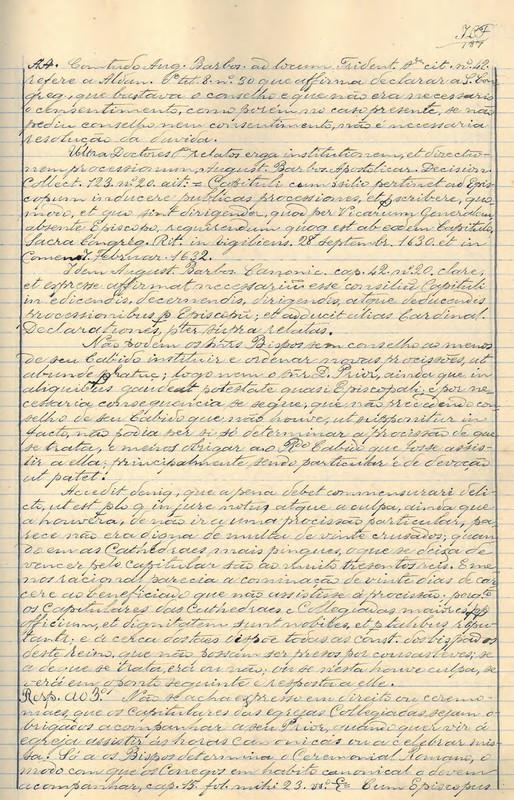 Ad. Comtudo Aug. Barbos. ad locum Trident. cit. nº 42.
refere a Aldan. 8. nº 30 que affirma declarar a S. Con-
greg., que bastava o conselho e que não era necessario
o consentimento, como porém no caso presente, se não
pedio conselho nem consentimento, não é necessaria
resolução da duvida.
Ultra Doctores relatos erga institutionem, et directio-
nem processionum, August. Barbos. Apostolicar. Decision.
Collect. 123. nº 20. ait: = Capituli consilio pertinet ad Epis-
copum inducere publicas processiones, et scribere, quo
modo, et quo sint dirigenda, quod per Vicarum Generalem,
absente Episcopo, requirendum quoq est ab eodem Capitulo,
Sacra Congreg. Rit. in 28 Septembr. 1630. et in
Februar. 1632.
Idem August. Barbos. Canonic. cap. 42. nº 20. clare,
et expresse affirmat necessariũ esse consiliũ Capituli
in edicendis, decernendis, dirigendis, atque deducendis
processionibus p Episcopũ; et adducit alias Cardinal.
Declarationes, pter supra relatas.
Não podem os Bispos sem conselho ao menos
de seu Cabido instituir e ordenar novas procissões, ut
abunde; logo nem o Snr. D. Prior, ainda que in
aliquibus gaudeat potestate quasi Episcopali; e por ne-
cessaria consequencia se segue, que não precedendo con-
selho de seu Cabido que não houve, ut supponitur in
facto, não podia per si só determinar a procissão de que
se trata, e menos obrigar ao Rdo Cabido que fosse assis-
tir a ella; principalmente, sendo particular e de devoção
ut patet.
Accedit deniq, que a pena debet commensurari deli-
cto, ut est in jure notus atque a culpa, ainda que
a houvera, de não ir a uma procissão particular, pa-
rece não era digna de multa de vinte crusados; quan-
do em as Cathedraes, mais pingues, o que se deixa de
vencer pelo Capitular são ao muito tresentos reis. E me-
nos racional parecia a cominação de vinte dias de car-
cere ao beneficiado que não assistisse á procissão; porqto
os Capitulares das Cathedraes e Collegiadas maiores
officium, et dignitatem sunt nobiles, et pluribus repu-
tanti; e a cerca dostaes dispoe todas as const. dos bispados
deste reino, que não possam ser presos por cousas leves; se
a de que se trata, era ou não; ou se nesta houve culpa, se
verá em o ponto seguinte e resposta a elle.
Resp. ao 3. Não se acha expresso em direito ou ceremo-
niaes, que os Capitulares das egrejas Collegiadas sejam o-
brigados a acompanhar a seu Prior, quando quer vir á
egreja assistir ás horas canonicas ou a celebrar mis-
sa. Só a os Bispos determina o Ceremonial Romano, o
modo com que os Conegos em habito canonical o devem
acompanhar, cap. 15. fol. mihi 23. Cum Episcopus